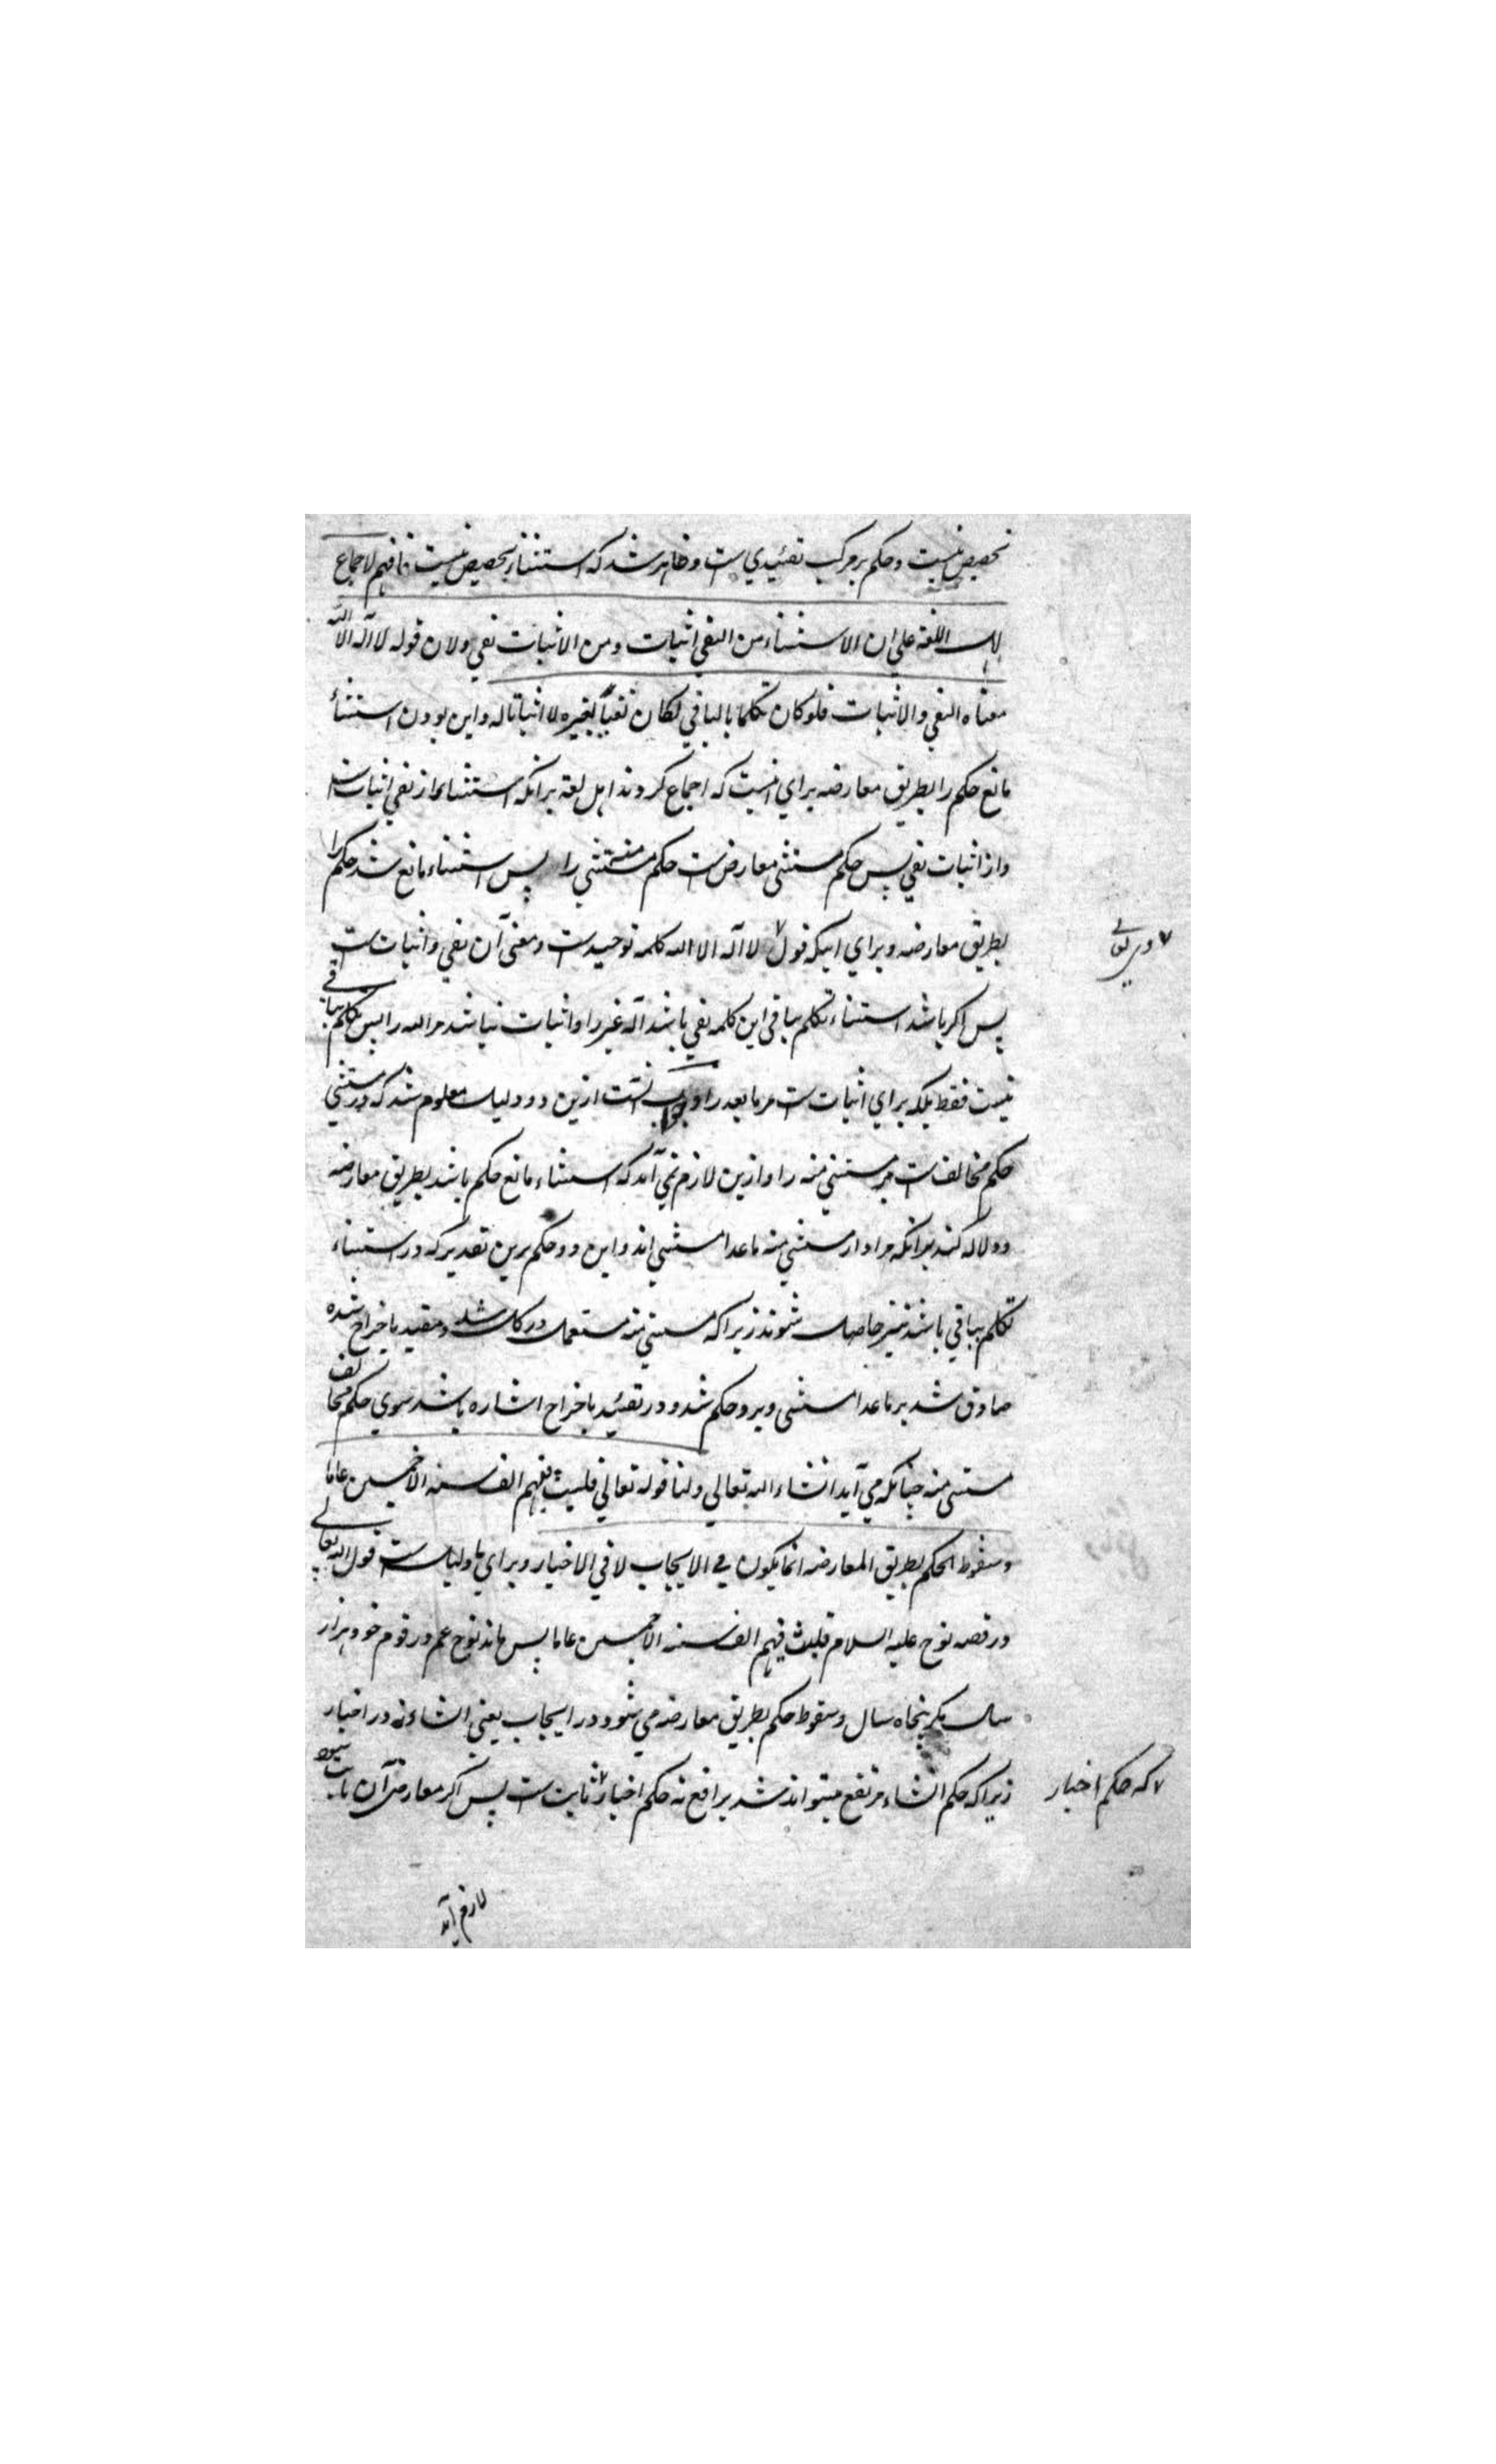 تخصیص نیست و حکم بر مرکب تقئیدی است و ظاهر شد که استثناء تخصیص نیست فافهم لاجماع
اهل اللغة علی ان الاستثناء من النفی اثبات و من الاثبات نفی و لان قوله لا اله الا الله
معناه النفی و الاثبات فلو کان تکلما بالباقی لکان نفیاً لغیره لا اثباتا له و این بودن استثنأ
مانع حکم را بطریق معارضه برای آنست که اجماع کردند اهل لغة برانکه استثناء از نفی اثبات است
و از اثبات نفی پس حکم مستثنی معارض است حکم مستثنی منه را پس استثناء مانع شد حکم را
بطریق معارضه و برای اینکه قول لا اله الا الله کلمه توحید است و معنی آن نفی و اثبات است
وی تعالی
پس اکر باشد استثناء تکلم بباقی این کلمه نفی باشد اله غیر را و اثبات نباشد مر الله را پس تکلم بباقی
نیست فقط بلکه برای اثبات است مر ما بعد را و جواب آنست ازین دو دلیل معلوم شد که در مستثنی
حکم مخالف است مر مستثنی منه را و ازین لازم نمی آید که استثناء مانع حکم باشد بطریق معارضه
و دلاله کند برانکه مراد از مستثنی منه ما عدا مستثنی اند و این دو حکم برین تقدیر که در استثناء
تکلم بباقی باشد نیز حاصل شوند زیرا که مستثنی منه مستعمل در کل شد و مقید باخراج شده
صادق شد بر ما عدا مستثنی و برو حکم شد و در تقئید باخراج اشاره باشد سوی حکم مخالف
مستثنی منه چنانکه می آید انشاء الله تعالی و لنا قوله تعالی فلبث فیهم الف سنه الا خمسین عاما
و سقوط الحکم بطریق المعارضه انما یکون فی الایجاب لا فی الاخبار و برای ما دلیل است قول الله تعالی
در قصه نوح علیه السلام فلبث فیهم الف سنه الا خمسین عاما پس ماند نوح عم در قوم خود هزار
سال مکر پنجاه سال و سقوط حکم بطریق معارضه می شود در ایجاب یعنی انشاء نه در اخبار
زیرا که حکم انشاء مرتفع میتواند شد برافع نه حکم اخبار ثابت است پس اکر معارض آن ثابت شود
که حکم اخبار
لازم آید